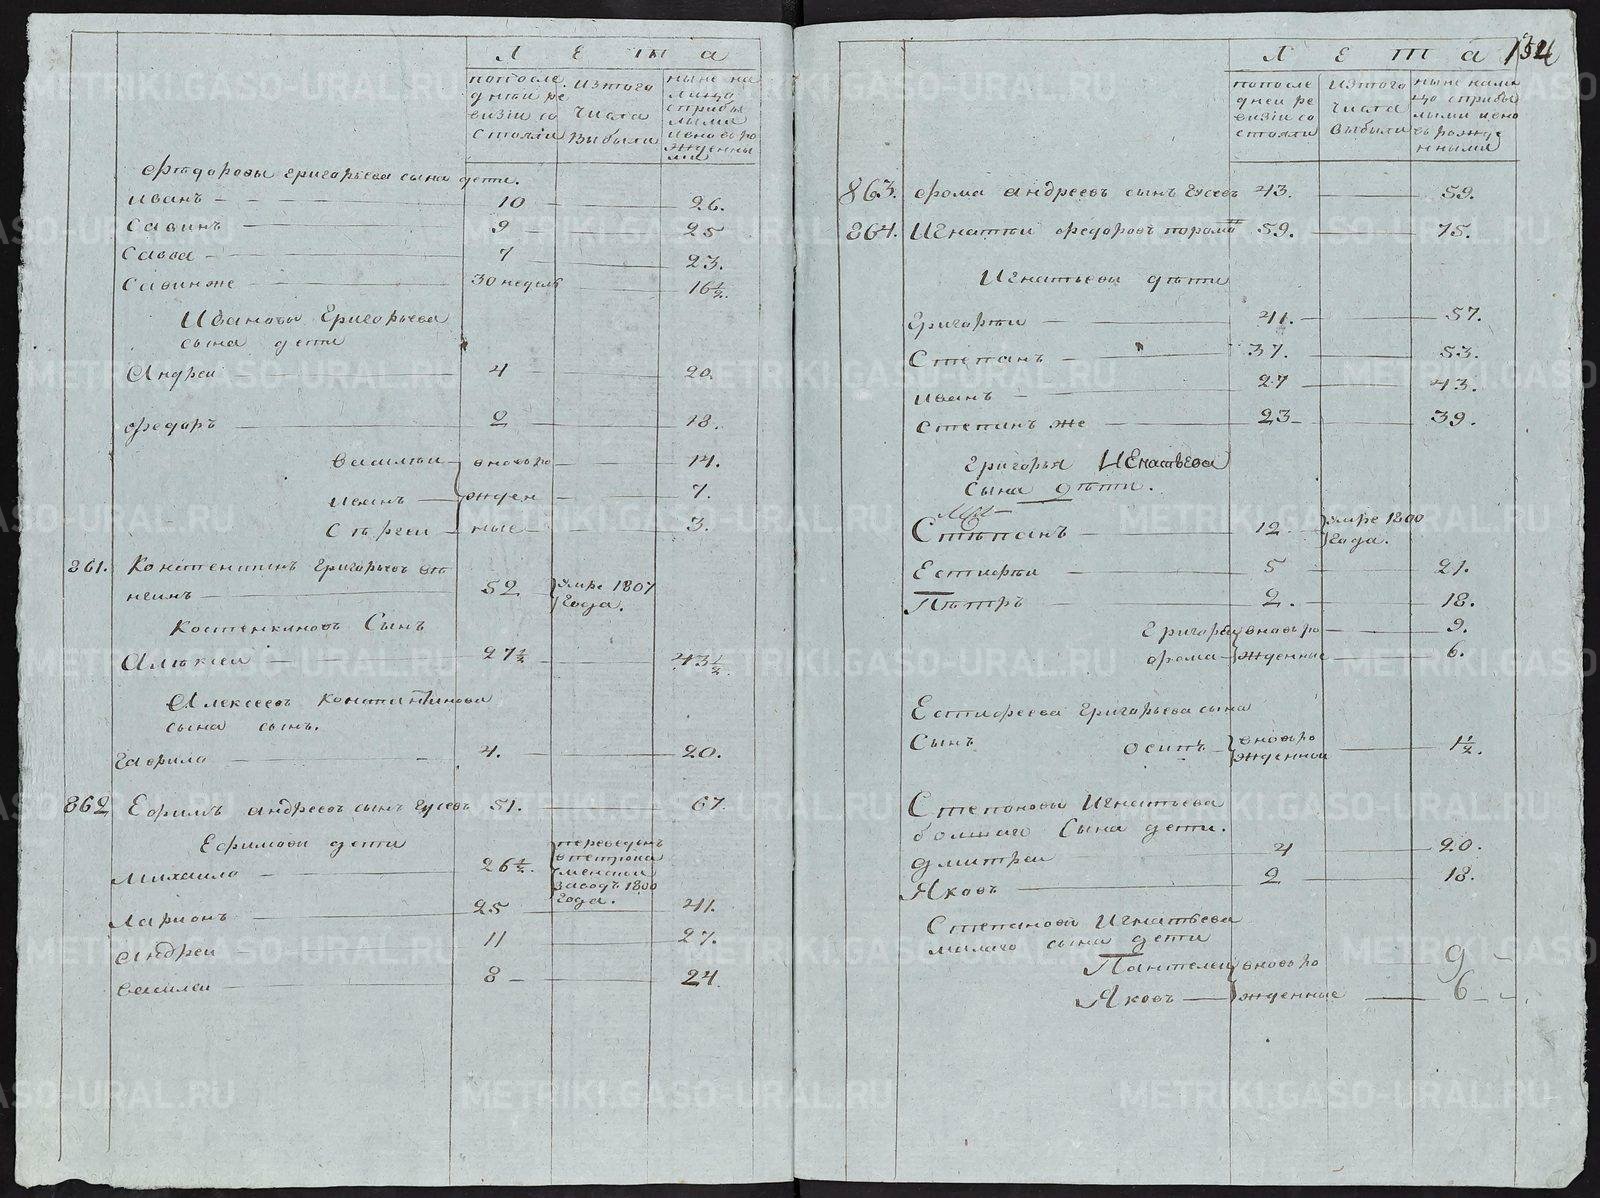 Л Е т а
попосле
днѣи ре
визiи со
стояли
изтого
числа
выбыли
ныне на
лицо
сприбы
лыми
ивновь ро
жденны
ми
Фтдоровы григорьева сына дети.
иванъ 10 26.
савинъ 9 25
савва 7 23.
савинже 30 недель 16½.
Ивановы Григорьева
сына дети
Андреи 4 20.
федоръ 2 18.
василѣи вновь ро 14.
иванъ жден 7.
Сѣргеи ные 3.
861. Константинъ григорьевъ
нгинъ 52 умре 1807
года.
Костенкиновъ Сынъ
Алѣксеи 27½ 43½.
Алексеевъ константинова
сына сынъ.
гаврило 4. 20.
862 Ефимъ андреевъ сынъ гусевъ 51. 67.
Ефимови дети
михаило 26½. переведенъ
впетрока
менскои
заводъ 1800
года.
Ларионъ 25 41.
андреи 11 27.
василеи 8 24.
134
Л Е т а
попосле
дней ре
визiи со
стояли
изтого
числа
выбыли
ныне нали
цо сприбы
лыми ивно
вь рожде
нными
863. фома андреевъ сынъ гусевъ 43. 59.
864. Игнатѣи федоровъ 59. 75.
Игнатьеви дѣти
григорѣи 41. 57.
Степанъ 37. 53.
иванъ 27 43.
степанъ же 23 39.
григорья Игнатьева
сына дѣти.
Стѣпанъ 12 умре 1800
года.
Естифѣи 5 21.
Пѣтръ 2. 18.
Григорѣи вновь ро 9.
фома жденные 6.
Естифеева григорьева сына
сынъ осипъ вновь ро
жденнои 1½.
Степановы Игнатьева
большаго сына дети.
дмитреи 4 20.
Яковъ 2 18.
Степанови Игнатьева
малаго сына дети
Пантелеи вновь ро 9
Яковъ жденные 6
METRIKI.GASO-URAL.RU